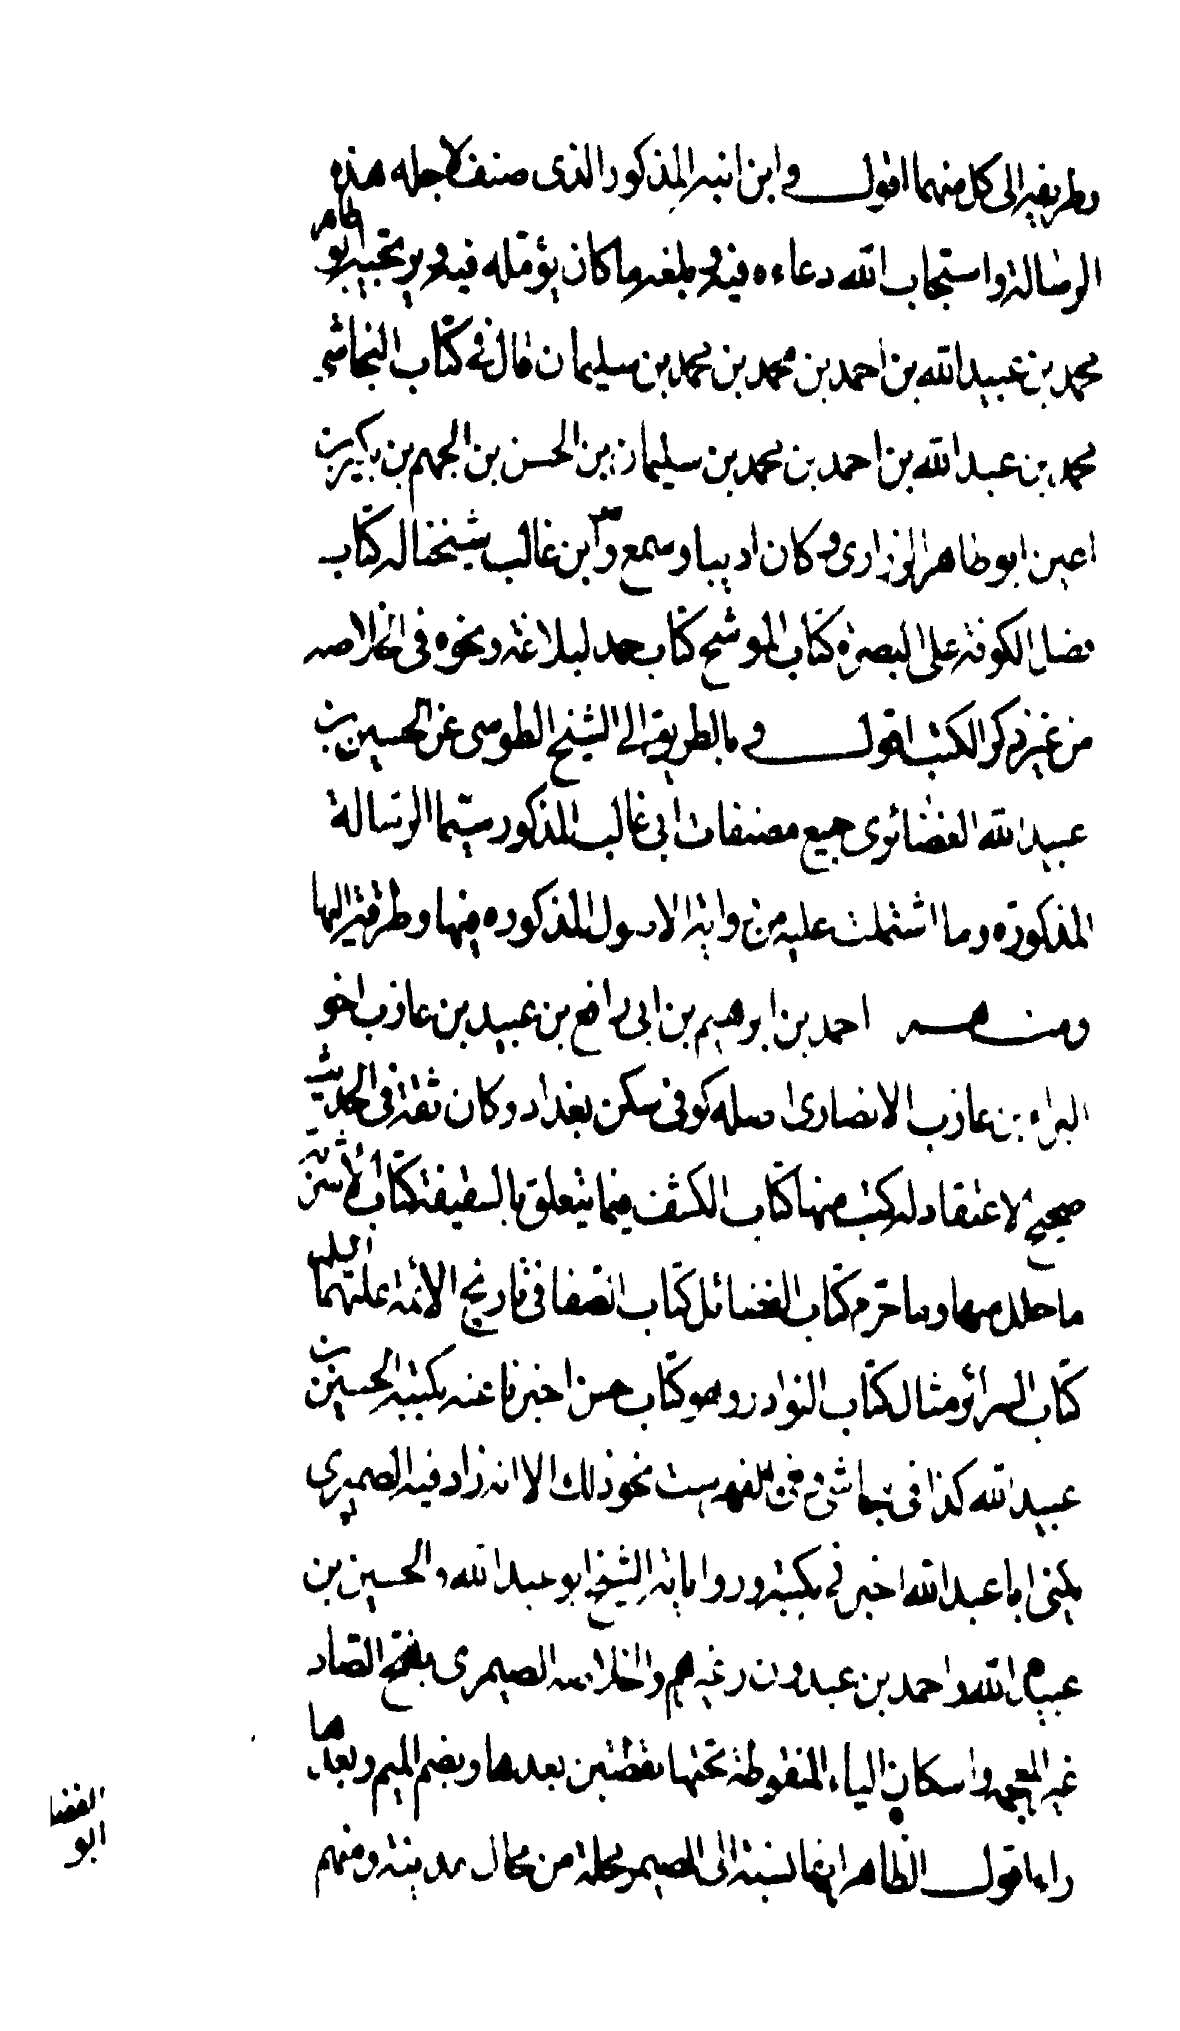 وطريقه الى كل منهما اقول وابن ابنه المذكور الذى صنف لاجله هذه
الرسالة واستجاب الله دعاءه فيه وبلغه ما كان يؤمله فيه ويرتجيه ابو طاهر
محمد بن عبيد الله بن احمد بن محمد بن محمد بن سليمان قال في كتاب النجاشي
محمد بن عبد الله بن احمد بن محمد بن سليمان بن الحسن بن الجهم بن بكير بن
اعين ابو طاهر الزراری وكان اديبا وسمع وهو ابن غالب شيخنا له كتاب
فضل الكوفة على البصرة كتاب الموشح كتاب حمد لبلاغة ونحوه فى الخلاصه
من غير ذكر الكتب اقول وبالطريق الى الشيخ الطوسى عن الحسين بن
عبيد الله الغضائرى جميع مصنفات ابى غالب المذكور سيما الرسالة
المذكورة وما اشتملت عليه من رواية الاصول المذكوره فيها وطرقه اليها
ومنهم احمد بن ابرهيم بن ابى رافع بن عبيد بن عازب اخو
البراء بن عازب الانصارى اصله كوفى سكن بغداد وكان ثقة فى الحديث
صحيح الاعتقاد له كتب منها كتاب الكشف فيما يتعلق بالسقيفة كتاب الاشربة
ما حلل منها وما حرم كتاب الفضائل كتاب الصفا فى تاريخ الائمة عليهم السلم
كتاب السرائر مثالب كتاب النوادر وهو كتاب حسن اخبرنا عنه بكتبه الحسين بن
عبيد الله كذا فى جاشى وفى الفهرست نحو ذلك الا انه زاد فيه الصيمرى
يكنى ابا عبد الله اخبرني بكتبه ورواياته الشيخ ابو عبد الله والحسين بن
عبيد الله واحمد بن عبدون وغيرهم والخلاصه الصيمرى بفتح الصاد
غير المعجمه واسكان الياء المنقوطة تحتها نقطتين بعدها وبضم الميم وبعدها
راء اقول الظاهر انها نسبة الى الصيمر محلة من محال مدينة ومنهم
الفضا
ابو